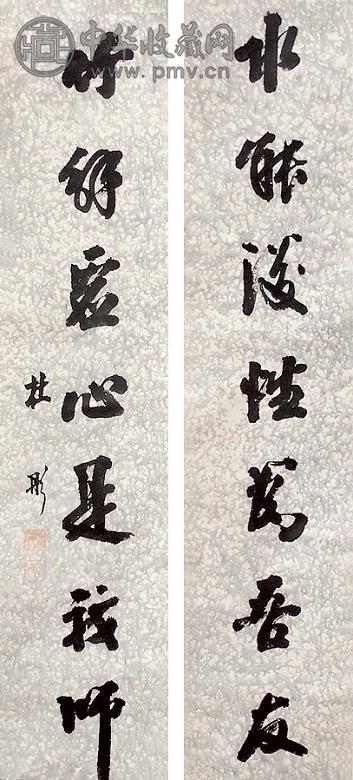 中华收藏网
www.pmv.cn
水能淡性為吾友
竹解虛心是我師
杜彤